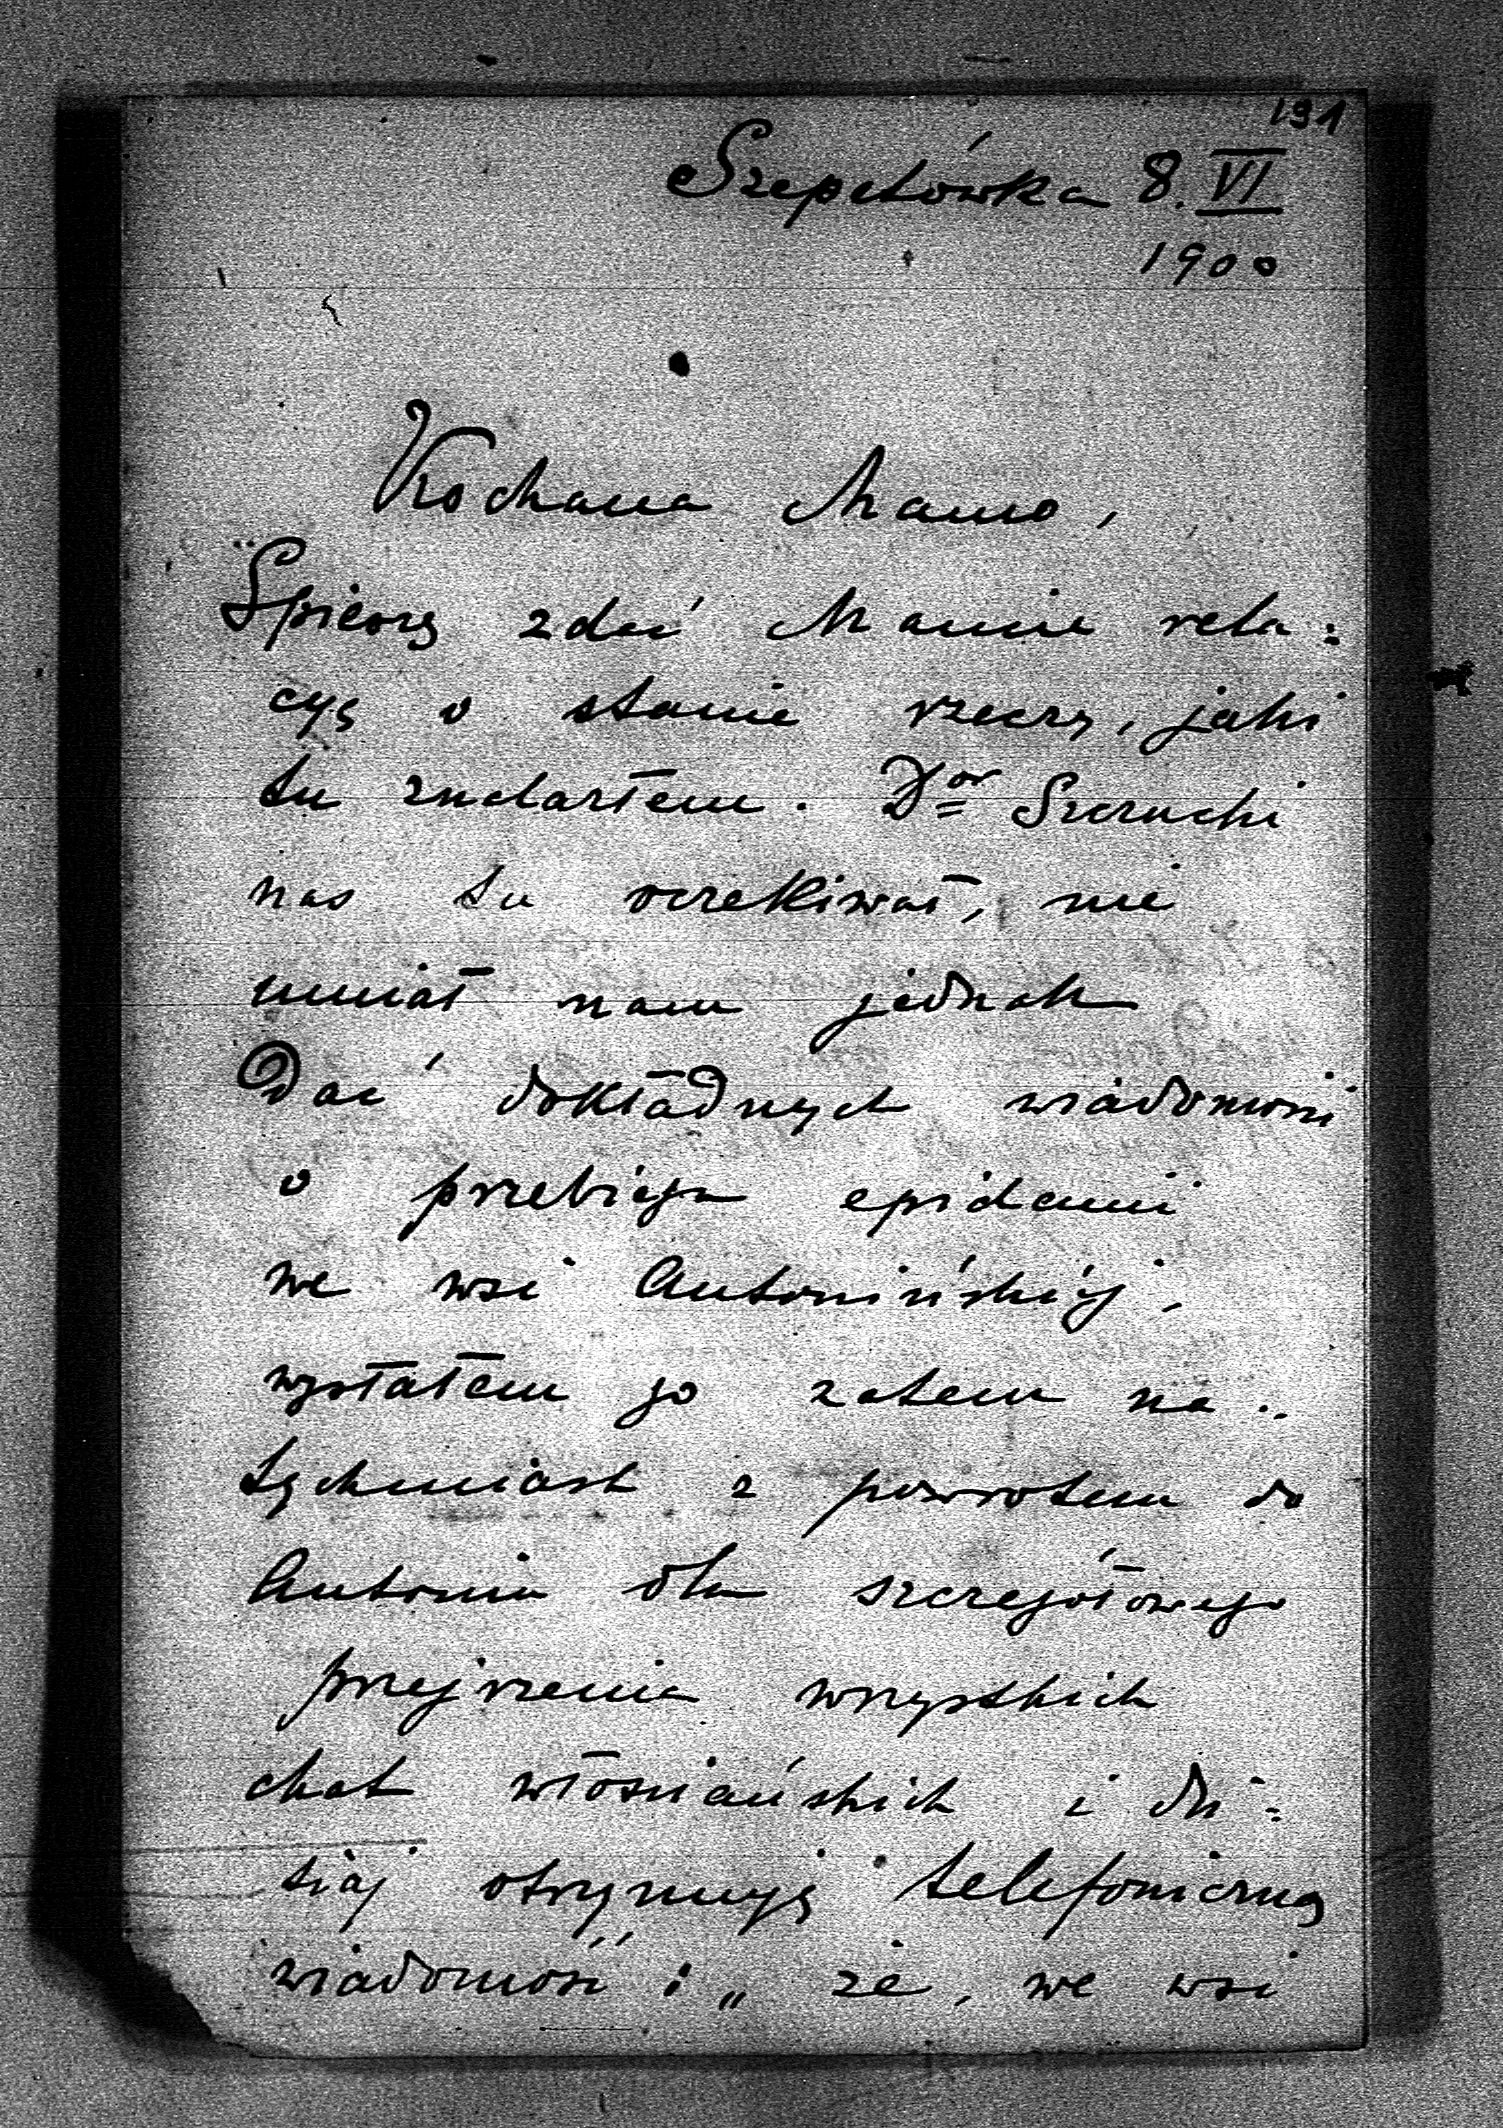 191
Szepetówka 8. VI
1900
Kochana Mamo,
Spieszę zdać Mamie rela=
cyę o stanie rzeczy, jaki
tu znalazłem. Dor Szczucki
nas tu oczekiwał, nie
umiał nam jednak
Dać dokładnych wiadomości
o przebiegu epidemii
we wsi Antonińskiéj,
wysłałem go zatem na=
tychmiast z powrotem do
Antonin dla szczegółowego
przejrzenia wszystkich
chat włościańskich i dzi=
siaj otrzymuję telefoniczną
wiadomość: „ że, we wsi